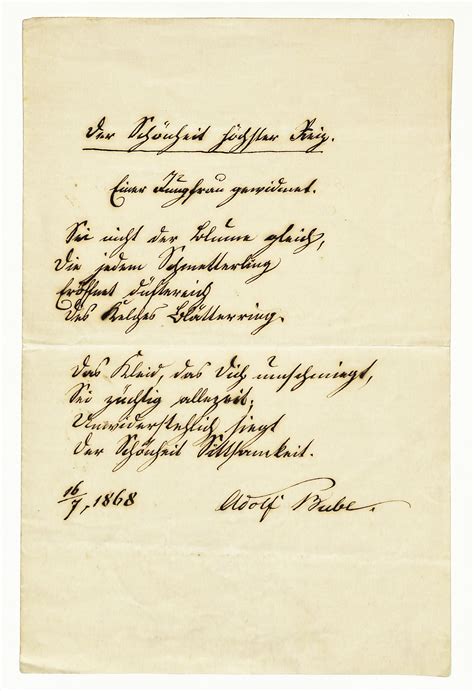 Der Schönheit höchster Reiz.
Einer Jungfrau gewidmet.
Sei nicht der Blume gleich,
Die jedem Schmetterling
Eröffnet düftereich
Des Kelches Blätterring.
Das Kleid, das Dich umschmiegt,
Sei züchtig allezeit;
Unwiderstehlich siegt
Der Schönheit Sittsamkeit.
16/7, 1868 Adolf Bube.